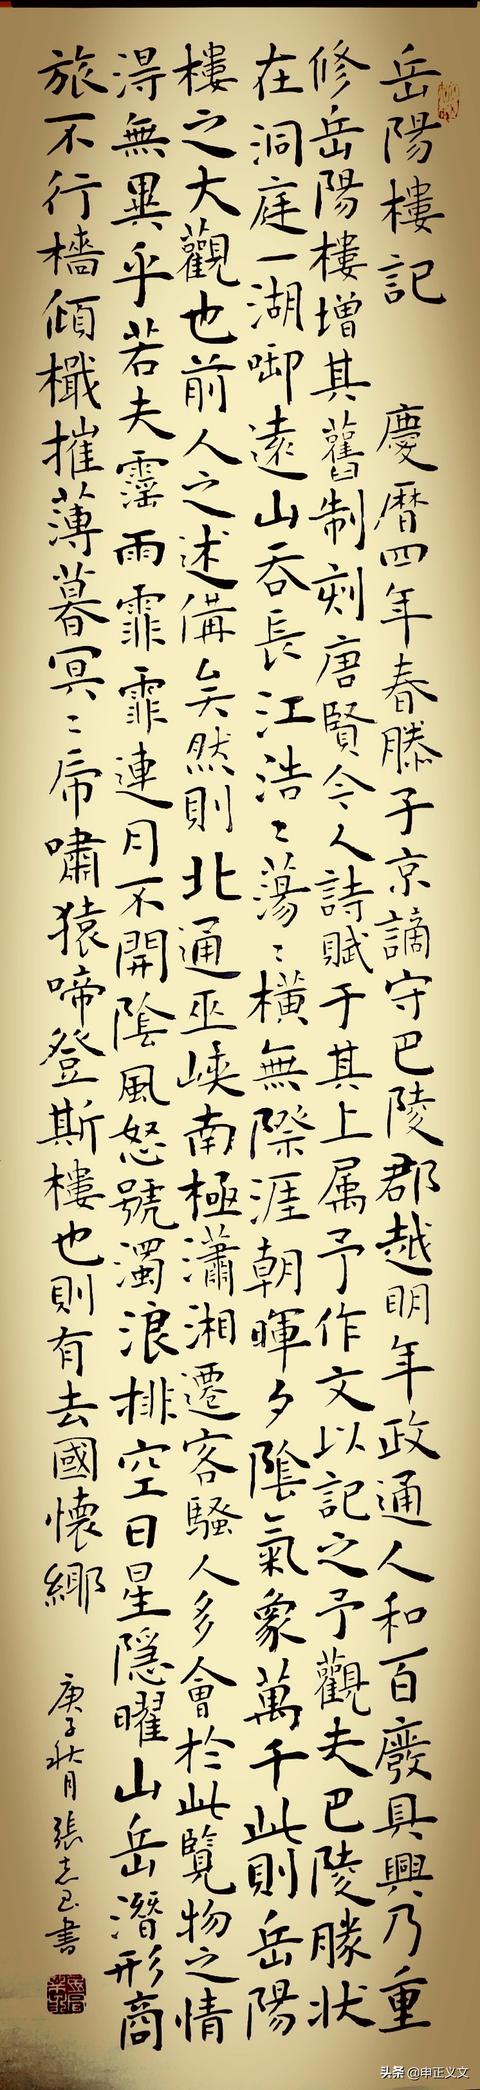 岳陽樓記 慶暦四年春滕子京謫守巴陵郡越明年政通人和百廢具興乃重
修岳陽樓增其舊制刻唐賢今人詩賦于其上属予作文以記之予觀夫巴陵勝状
在洞庭一湖啣遠山吞長江浩〻蕩〻橫無際涯朝暉夕陰氣象萬千此則岳陽
樓之大觀也前人之述備矣然則北通巫峽南極瀟湘遷客騷人多會於此覽物之情
得無異乎若夫霪雨霏霏連月不開陰風怒號濁浪排空日星隱曜山岳潛形商
旅不行檣傾檝摧薄暮冥〻虎嘯猿啼登斯樓也則有去國懷鄉
庚子秋月張志書
头条 @申正义文